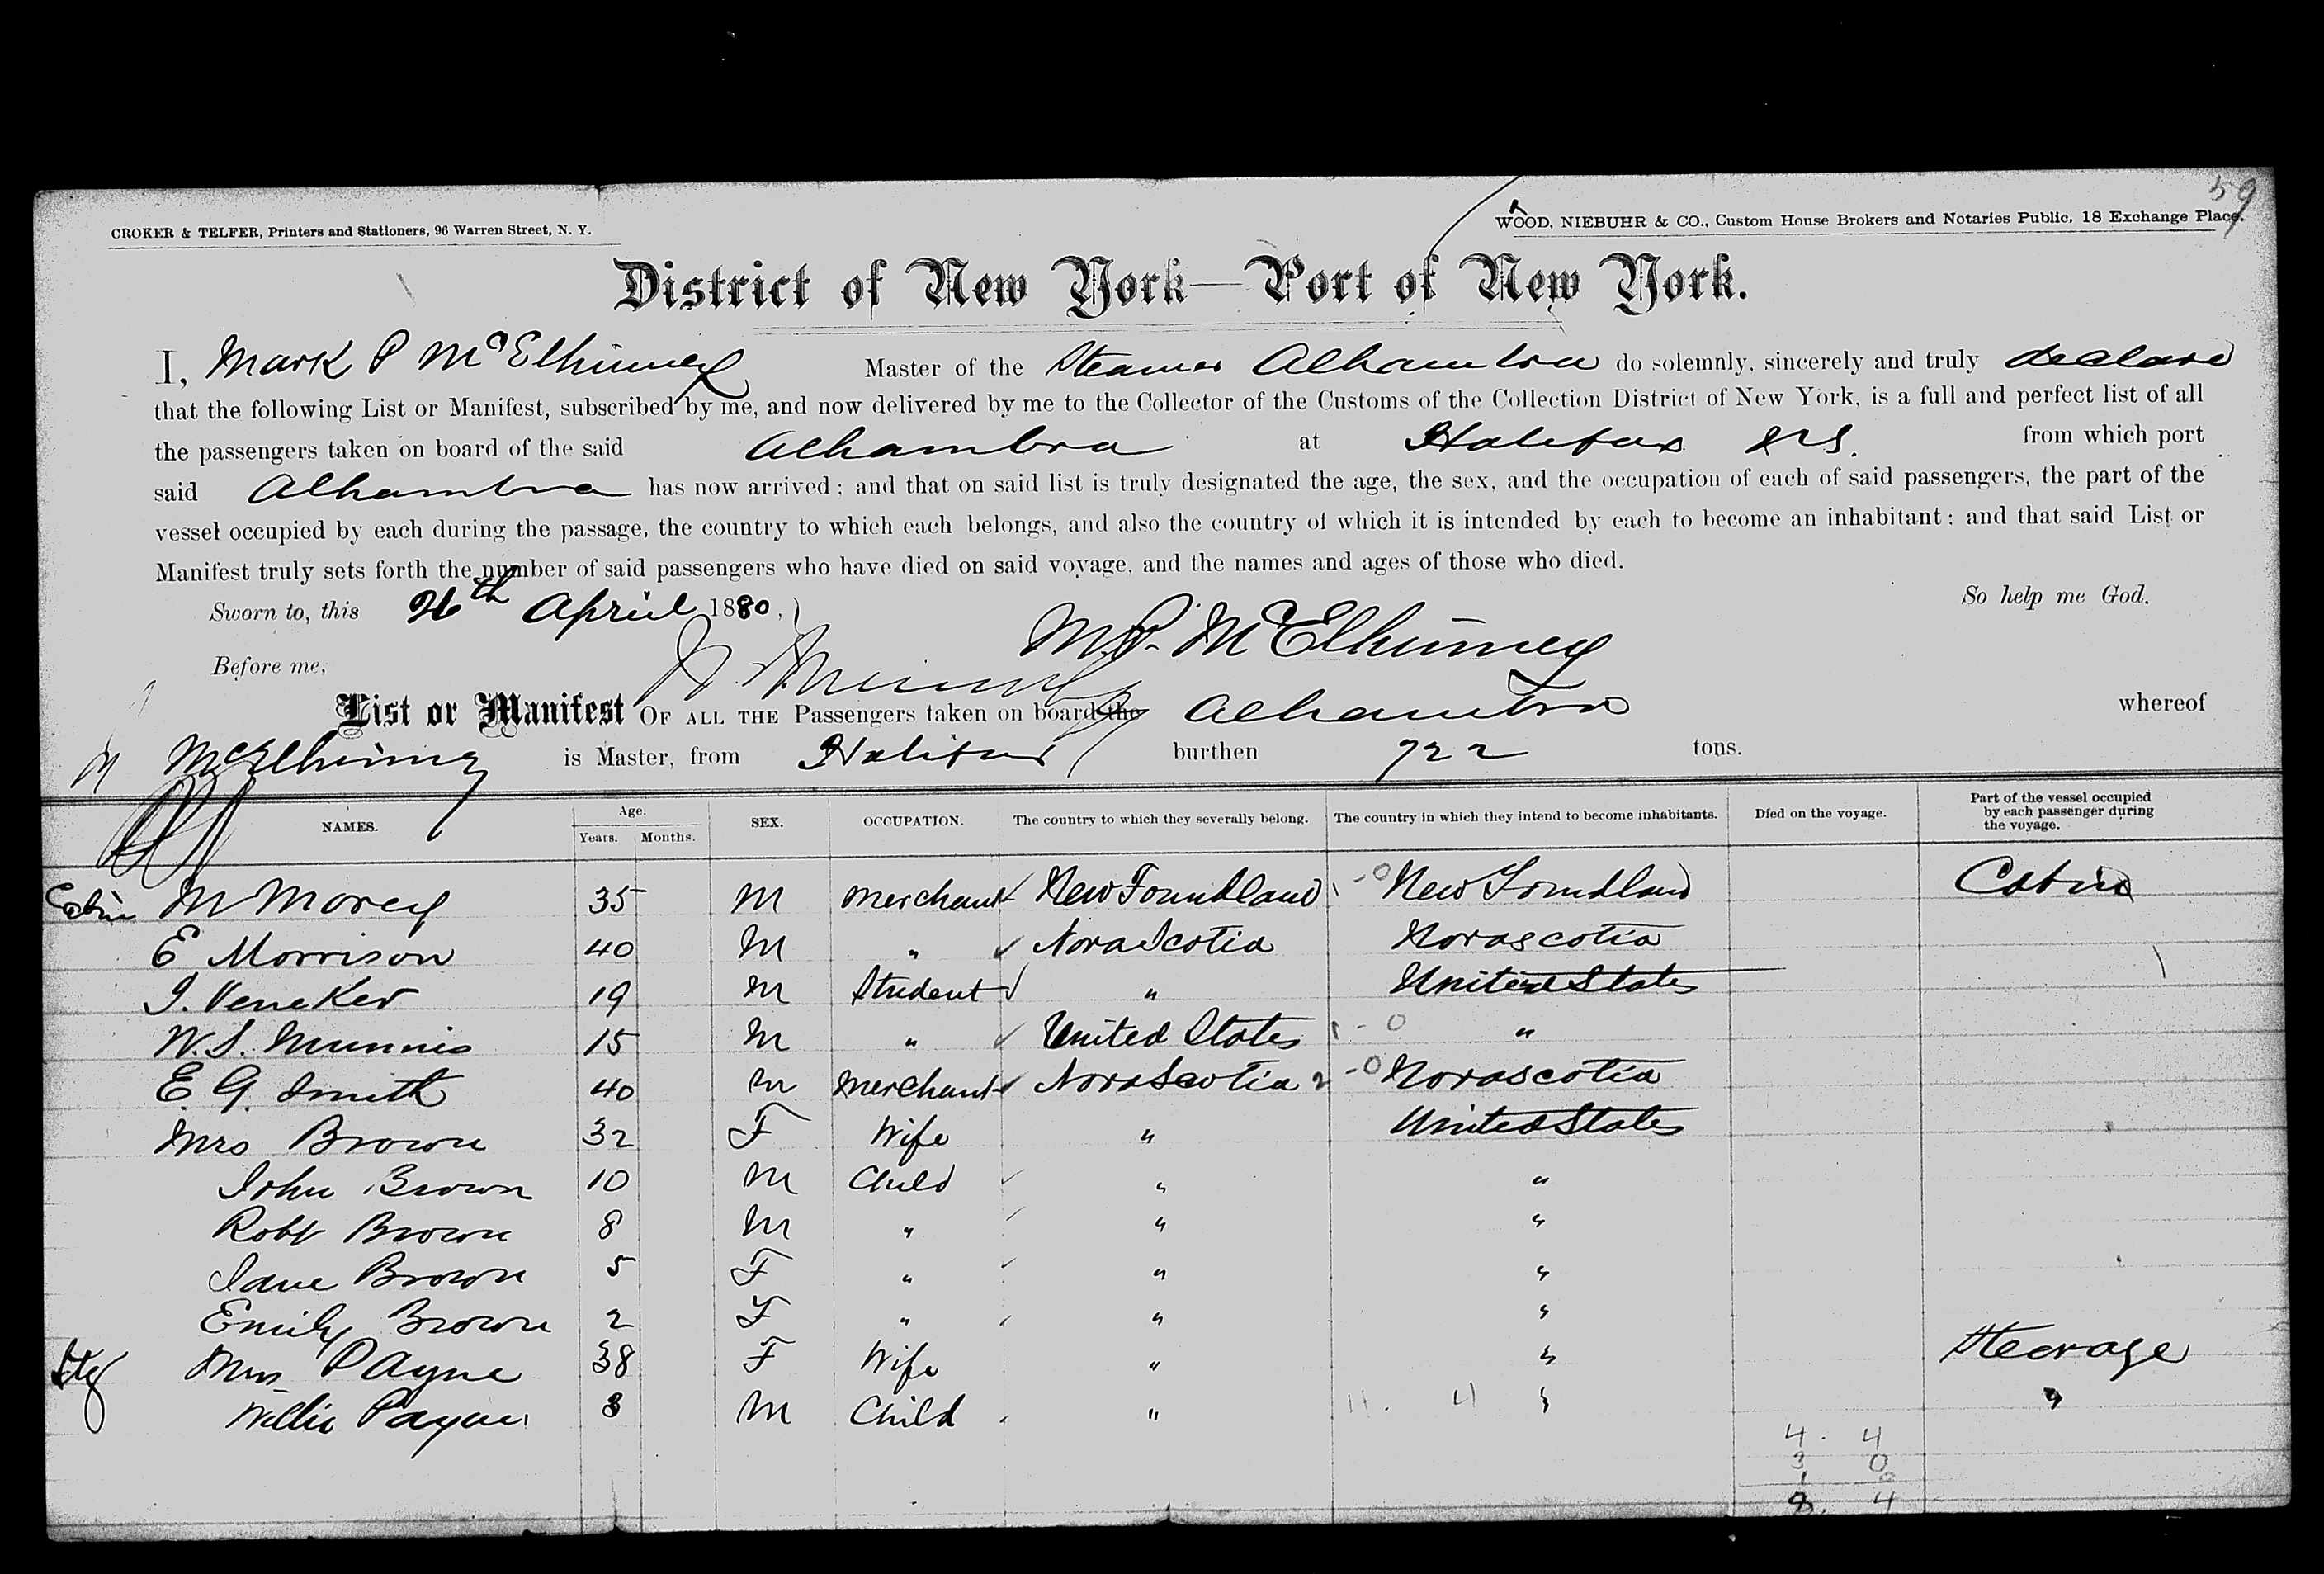 59
CROKER & TELFER, Printers and Stationers, 96 Warren Street, N. Y.
WOOD, NIEBUHR & CO., Custom House Brokers and Notaries Public, 18 Exchange Place.
District of New York—Port of New York.
I, Mark P McElhinney Master of the Steamer Alhambra do solemnly, sincerely and truly declare
that the following List or Manifest, subscribed by me, and now delivered by me to the Collector of the Customs of the Collection District of New York, is a full and perfect list of all
the passengers taken on board of the said Alhambra at Halifax N.S. from which port
said Alhambra has now arrived; and that on said list is truly designated the age, the sex, and the occupation of each of said passengers, the part of the
vessel occupied by each during the passage, the country to which each belongs, and also the country of which it is intended by each to become an inhabitant; and that said List or
Manifest truly sets forth the number of said passengers who have died on said voyage, and the names and ages of those who died.
Sworn to, this 26th April 1880, So help me God.
Before me, M.P. McElhinney
List or Manifest OF ALL THE Passengers taken on board the Alhambra whereof
M McElhinney is Master, from Halifax burthen 722 tons.
NAMES. Age. Years. Months. SEX. OCCUPATION. The country to which they severally belong. The country in which they intend to become inhabitants. Died on the voyage. Part of the vessel occupied by each passenger during the voyage.
Cabin M Morey 35 M Merchant New Foundland New Foundland Cabin
E Morrison 40 M " Nova Scotia Novascotia
I. Veneker 19 M Student " United States
W.S. Munnis 15 M " United States "
E. G. Smith 40 M Merchant Nova Scotia Novascotia
Mrs Brown 32 F Wife " United States
John Brown 10 M Child " "
Robt Brown 8 M " " "
Jane Brown 5 F " " "
Emily Brown 2 F " " "
Stg Mrs Payne 38 F Wife " " Steerage
Willie Payne 3 M Child " " "
4 . 4
3 0
1 0
8 . 4